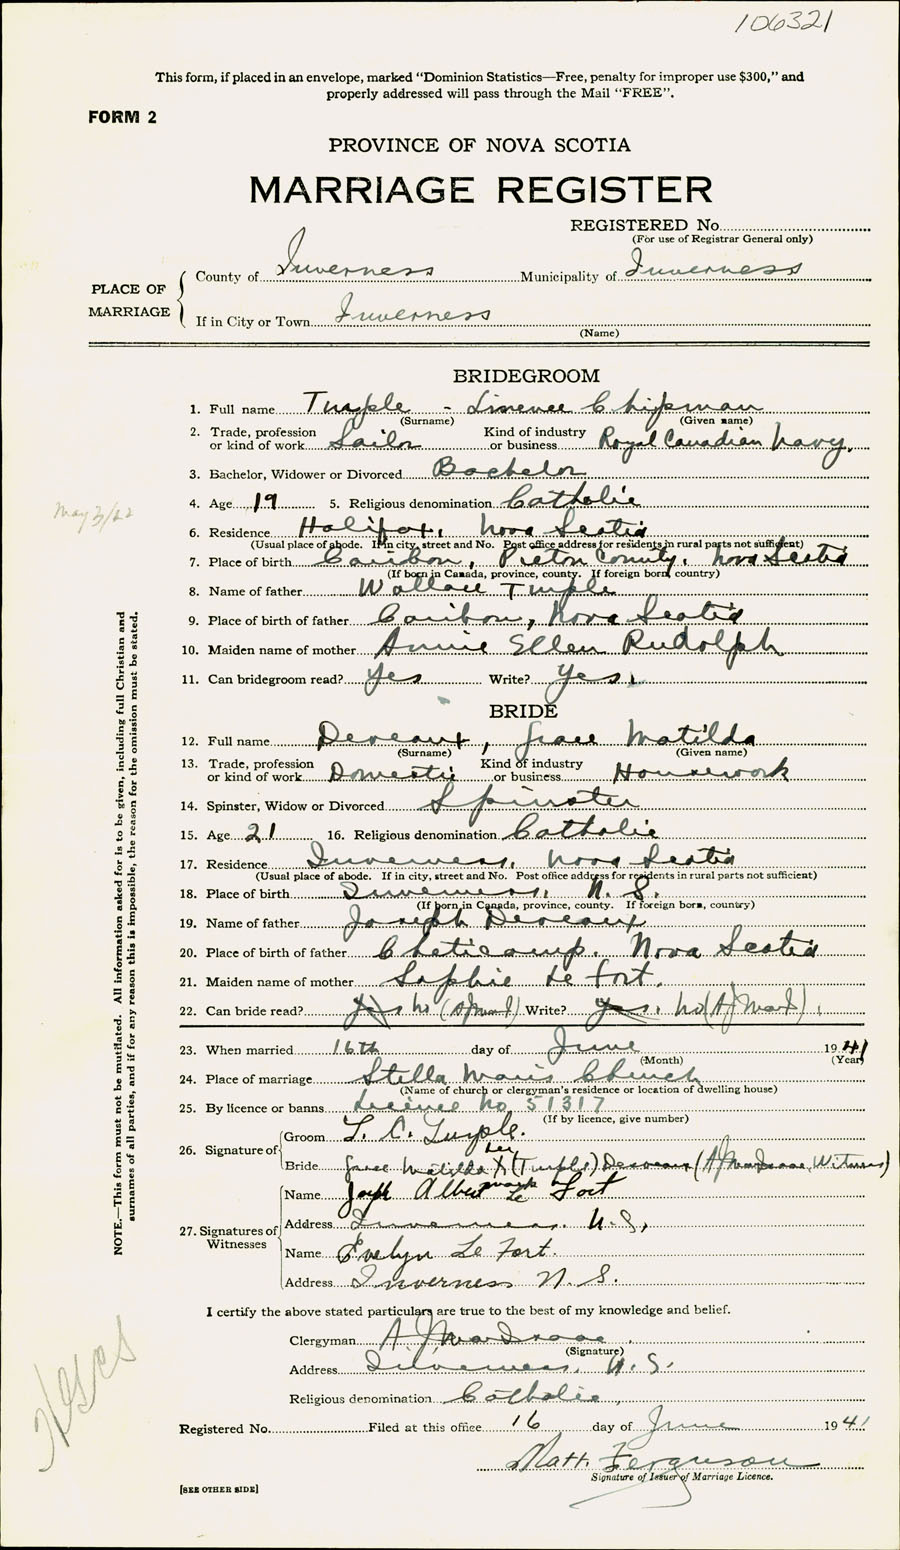 106321
This form, if placed in an envelope, marked "Dominion Statistics—Free, penalty for improper use $300," and
properly addressed will pass through the Mail "FREE".
FORM 2
PROVINCE OF NOVA SCOTIA
MARRIAGE REGISTER
REGISTERED No.
(For use of Registrar General only)
PLACE OF MARRIAGE
County of Inverness Municipality of Inverness
If in City or Town Inverness
(Name)
BRIDEGROOM
1. Full name Turple - Chipman
(Surname) (Given name)
2. Trade, profession or kind of work Sailor Kind of industry or business Royal Canadian Navy.
3. Bachelor, Widower or Divorced Bachelor
4. Age 19 5. Religious denomination Catholic
May 3/22
6. Residence Halifax, Nova Scotia
(Usual place of abode. If in city, street and No. Post office address for residents in rural parts not sufficient)
7. Place of birth Caribou, Pictou County, Nova Scotia
(If born in Canada, province, county. If foreign born, country)
8. Name of father Wallace Turple
9. Place of birth of father Caribou, Nova Scotia
10. Maiden name of mother Annie Ellen Rudolph
11. Can bridegroom read? Yes Write? Yes.
BRIDE
12. Full name Deveaux, Grace Matilda
(Surname) (Given name)
13. Trade, profession or kind of work Domestic Kind of industry or business Housework
14. Spinster, Widow or Divorced Spinster
15. Age 21 16. Religious denomination Catholic
17. Residence Inverness, Nova Scotia
(Usual place of abode. If in city, street and No. Post office address for residents in rural parts not sufficient)
18. Place of birth Inverness, N. S.
(If born in Canada, province, county. If foreign born, country)
19. Name of father Joseph Deveaux
20. Place of birth of father Cheticamp. Nova Scotia
21. Maiden name of mother Sophie Le Fort.
22. Can bride read? Yes No Write? Yes. No
23. When married 16th day of June 1941
(Month) (Year)
24. Place of marriage Stella Maris Church
(Name of church or clergyman's residence or location of dwelling house)
25. By licence or banns Licence No 51317
(If by licence, give number)
26. Signature of
Groom L. C. Turple.
her
Bride Grace Matilda X (Turple) Deveaux (A J MacIsaac, Witness)
mark
27. Signatures of Witnesses
Name Joseph Albert Le Fort
Address Inverness, N.S,
Name Evelyn Le Fort.
Address Inverness N. S.
I certify the above stated particulars are true to the best of my knowledge and belief.
Clergyman A J MacIsaac
(Signature)
Address Inverness, N. S.
Religious denomination Catholic
Registered No. Filed at this office 16 day of June 1941
Matt. Ferguson
Signature of Issuer of Marriage Licence.
[SEE OTHER SIDE]
NOTE.—This form must not be mutilated. All information asked for is to be given, including full Christian and
surnames of all parties, and if for any reason this is impossible, the reason for the omission must be stated.